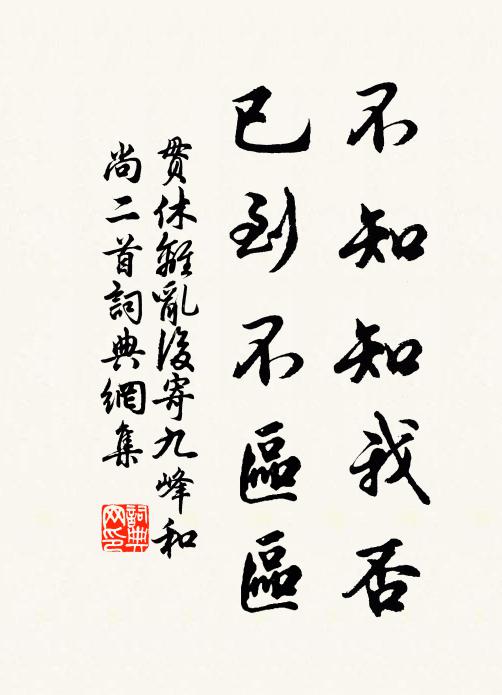 不知知我否
已到不區區
貫休離亂後寄九峰和
尚二首詞典網集
詞典
网印